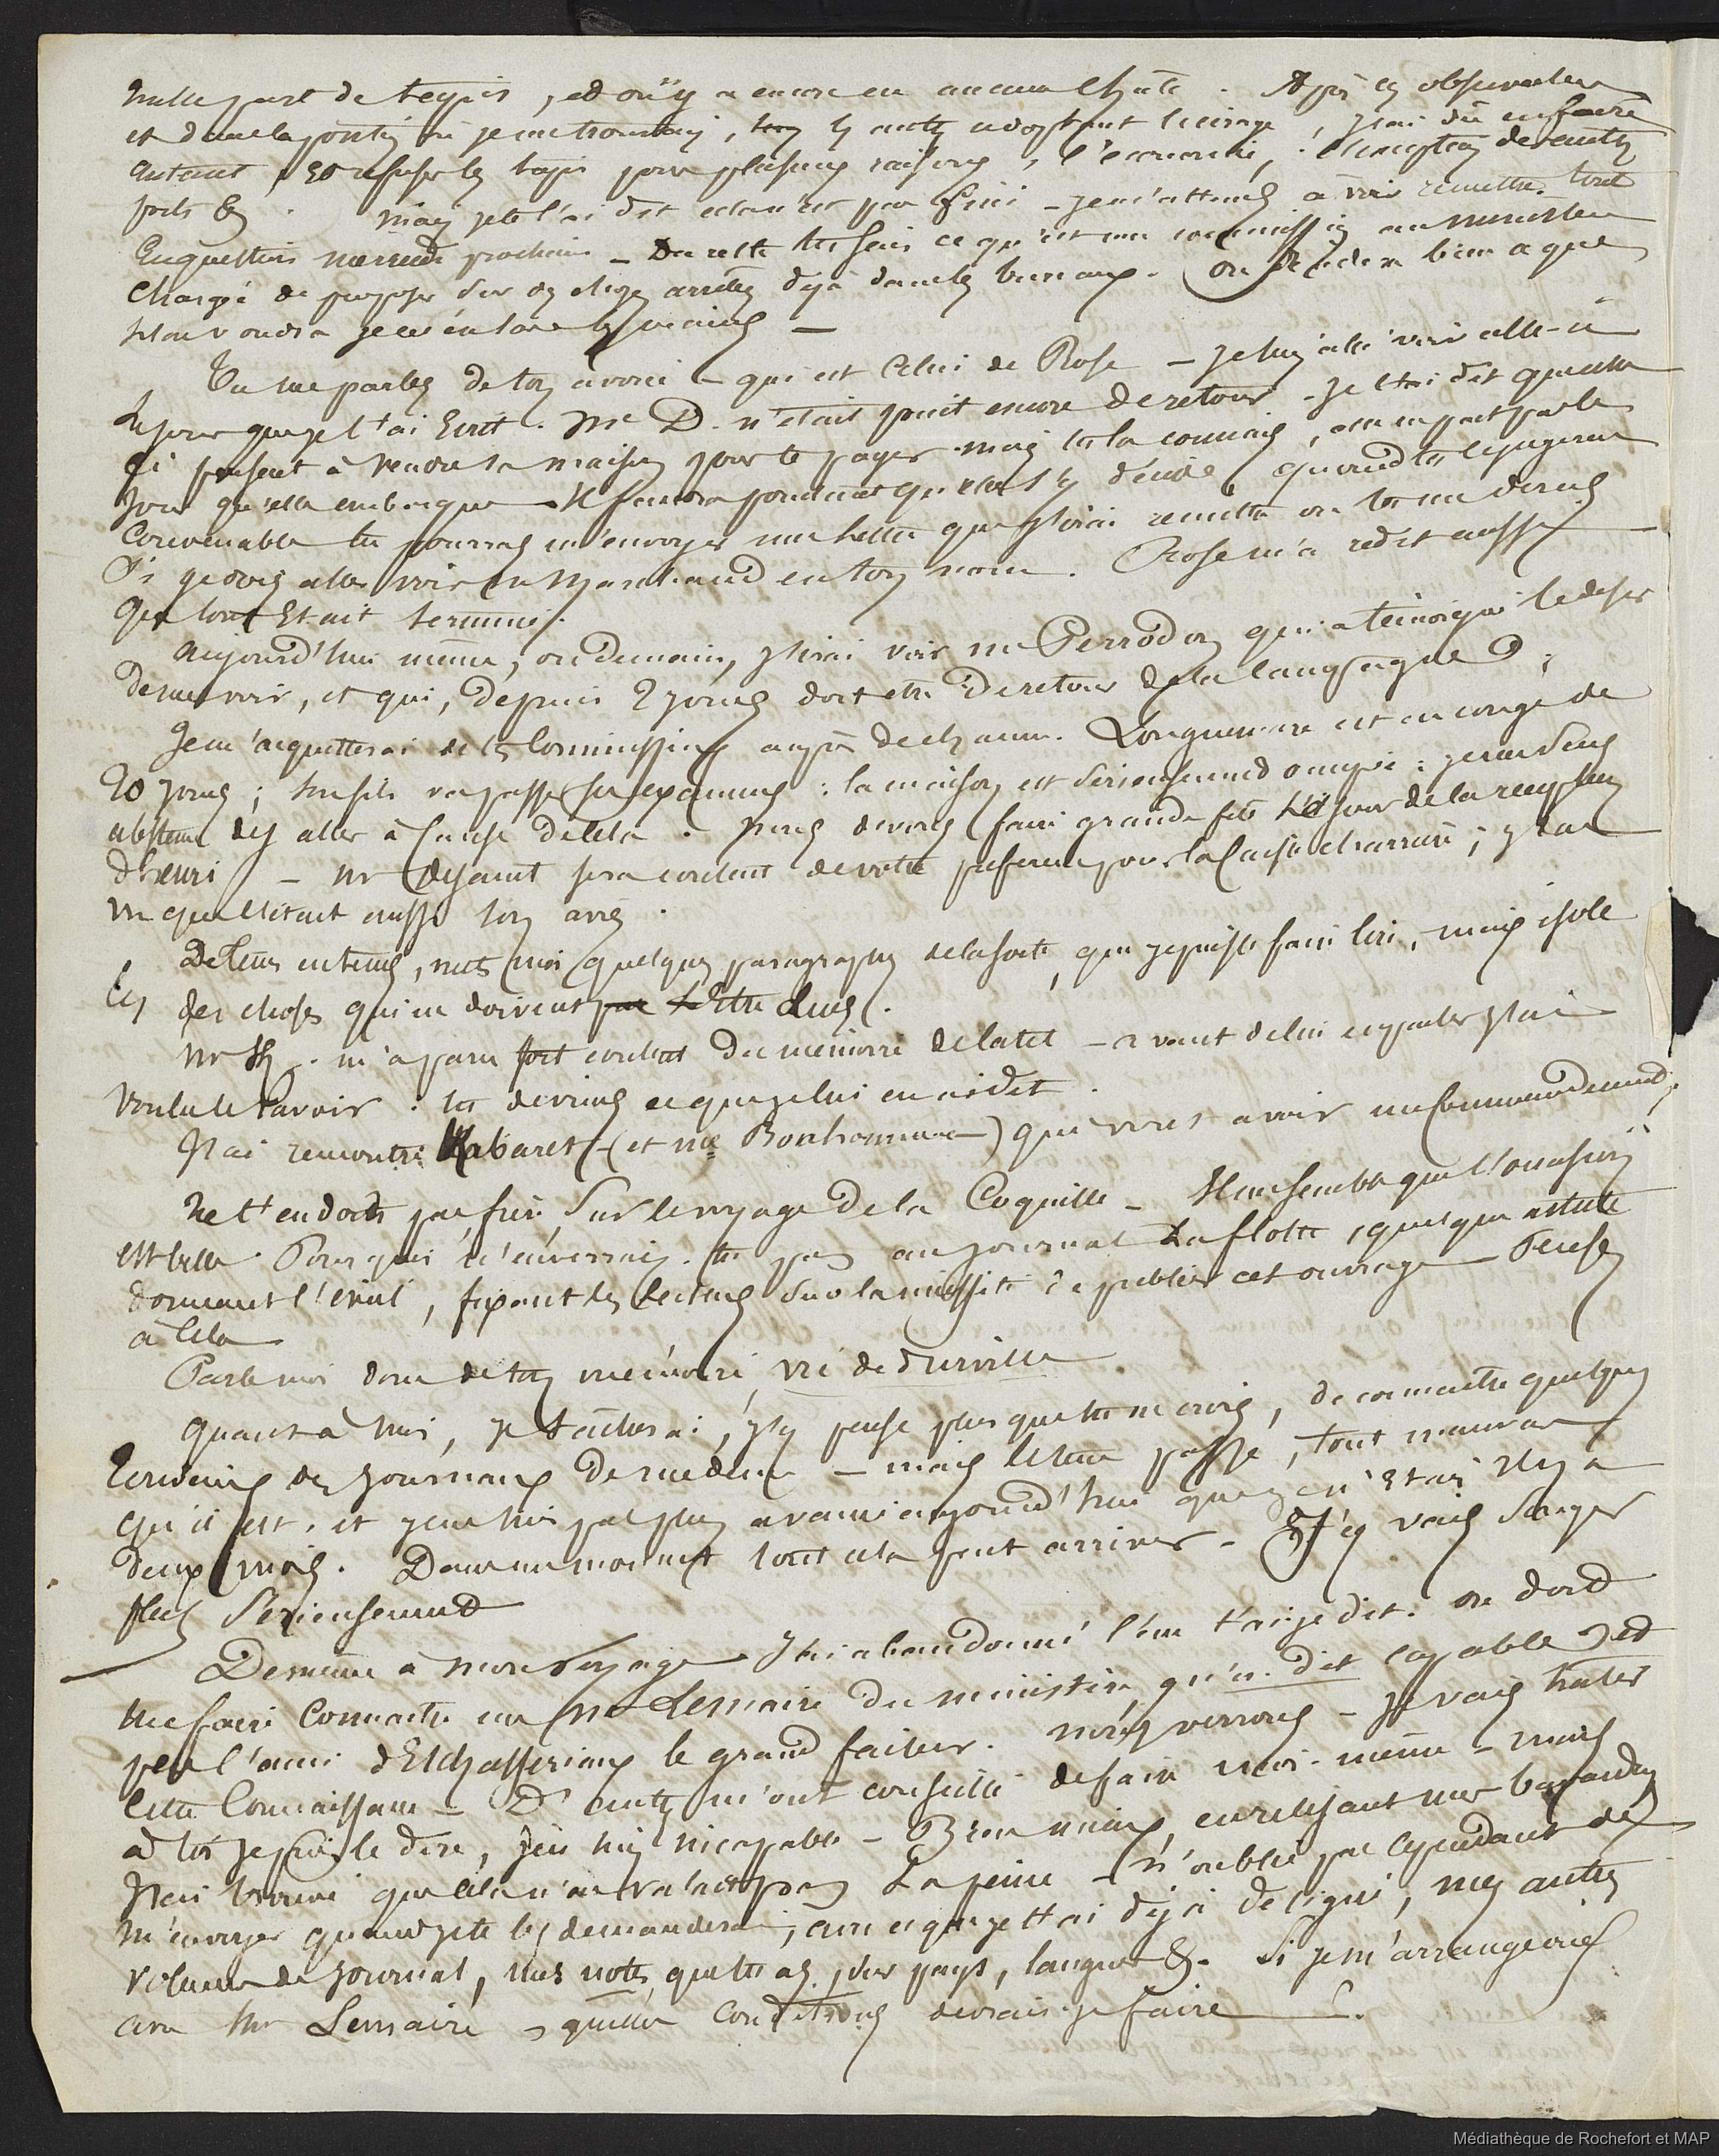 nulle part de tapis, et où il y a encore eu aucun achat. Après ces observations
et dans la position où je me trouvais, tous les autres adoptant l'usage, j'ai dû en faire
autant, et refuser les tapis pour plusieurs raisons, l'économie,
mais je te l'ai dit cela n'est pas fini - je m'attends à voir remettre tout
en question mercredi prochain - Du reste tu sais ce qu'est une commission au ministère
chargée de proposer sur des choses arrêtées déjà dans les bureaux. On décidera bien ce que
l'on voudra je m'en lave les mains -
Tu me parles de ton avoué - qui est celui de Rose - je suis allé voir celle-ci
le jour que je t'ai Ecrit. Mr D. n'était point encore de retour - je t'ai dit qu'elle
pensait à vendre sa maison pour te payer mais tu la connais,
jour qu'elle embarque - Il faudra pourtant qu'elle s'y décide, quand tu le jugeras
convenable tu pourras m'envoyer une lettre que j'irai remettre ou tu me diras
si je dois aller voir en ton nom. Rose m'a redit aussi -
que tout Etait terminé.
Aujourd'hui même, ou demain, j'irai voir me Perrodon qui a témoigné le désir
de me voir, et qui, depuis 2 jours doit être de retour de la campagne;
Je m'acquitterai de tes Commissions auprès de chacun. Longuemare est en congé de
20 jours; son fils va passer ses examens: la maison est sérieusement occupée: je me suis
abstenu d'y aller à cause de cela. nous devons faire grande fête le jour de la réception
d'henri - mr Dejaunt sera content de votre préférence pour la Caisse ; j'ai
vu que c'était aussi ton avis.
De tems en tems, mets moi quelques paragraphes de la sorte, que je puisse faire lire, mais isole
les des choses qui ne doivent pas l'être lues.
mr m'a paru fort content du mémoire de - avant de lui en parler j'ai
voulu le savoir: tu devines ce que je lui en ai dit.
J'ai rencontré Kabaret - (et me Bonhomme -) qui vient avoir un commandement.
Ne t'endors pas frère, sur le voyage de la Coquille - Il me semble que l'occasion
est belle. Pourquoi n'enverrais-tu pas au journal La flotte, quelque article
donnant l'éveil, fixant les lecteurs sur la nécessité de publier cet ouvrage - Penses
à cela
Parle moi donc de ton mémoire, vu de durville
quant à moi, je tâcherai, j'y pense plus que tu ne crois, de connaître quelques
Ecrivains des journaux de médecine - mais le tems passe, tout mauvais
qu'il est, et je ne suis pas plus avancé aujourd'hui que je n'Etais il y a
deux mois. Dans un moment tout cela peut arriver - J'y vais songer
plus sérieusement
De même à mon voyage - J'ai abandonné t'ai-je dit. On doit
me faire connaître un mr Lemaire du ministère, qu'on dit capable, et
l'ami d'Eschasseriaux le grand faiseur. nous verrons - je vais hâter
cette connaissance - D'autres m'ont conseillé de faire moi-même - mais
à toi je puis le dire, j'en suis incapable - Bien mieux, en relisant mes bavardages
J'ai trouvé que cela n'en valait pas La peine - n'oublie pas cependant de
m'envoyer quand je te les demanderai, avec ce que je t'ai déjà désigné, mes autres
volumes de journal, mes notes, que tu as, sur pays, langues &. Si je m'arrangeais
avec Mr Lemaire, quelles conditions devrais-je faire.
Médiathèque de Rochefort et MAP